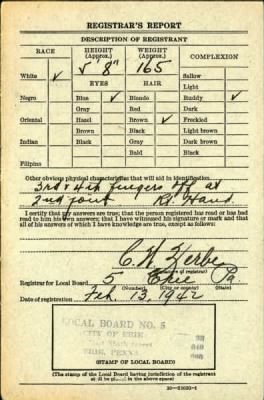 REGISTRAR'S REPORT
DESCRIPTION OF REGISTRANT
RACE HEIGHT (Approx.) WEIGHT (Approx.) COMPLEXION
5' 8" 165
White ✓ Sallow
EYES HAIR Light
Negro Blue ✓ Blonde Ruddy ✓
Gray Red Dark
Oriental Hazel Brown ✓ Freckled
Brown Black Light brown
Indian Black Gray Dark brown
Bald Black
Filipino
Other obvious physical characteristics that will aid in identification
3rd & 4th fingers off at
2nd joint Rt. Hand.
I certify that my answers are true; that the person registered has read or has had
read to him his own answers; that I have witnessed his signature or mark and that
all of his answers of which I have knowledge are true, except as follows:
C. W. Zerbe
(Signature of registrar)
Registrar for Local Board 5 Erie Pa.
(Number) (City or county) (State)
Date of registration Feb. 13, 1942
LOCAL BOARD NO. 5
CITY OF ERIE
ERIE, PENNA
(STAMP OF LOCAL BOARD)
(The stamp of the Local Board having jurisdiction of the registrant
shall be placed in the above space)